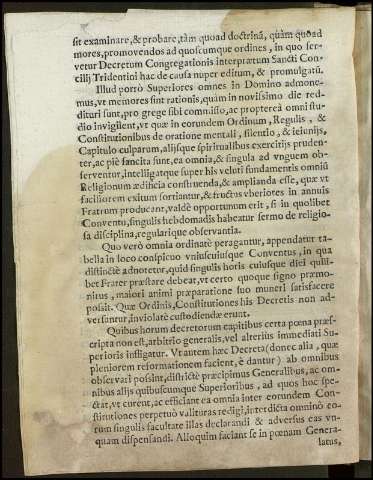 sit examinare, & probare, tàm quoad doctrinã, quàm quoad
mores, promovendos ad quoscumque ordines, in quo ser-
vetur Decretum Congregationis interpretum Sancti Con-
cilij Tridentini hac de causa nuper editum, & promulgatũ.
Illud porrò Superiores omnes in Domino admone-
mus, vt memores sint rationis, quàm in novissimo die red-
dituri sunt, pro grege sibi commisso, ac proptereà omni stu-
dio invigilent, vt quæ in eorundem Ordinum, Regulis, &
Constitutionibus de oratione mentali, silentio, & ieiunijs,
Capitulo culparum, alijsque spiritualibus exercitijs pruden-
ter, ac piè sancita sunt, ea omnia, & singula ad vnguem ob-
serventur, intelligatque super his veluti fundamentis omniũ
Religionum ædificia construenda, & amplianda esse, quæ vt
faciliorem exitum sortiantur, & fructus vberiores in annuis
Fratrum producant, valdè opportunum erit, si in quolibet
Conventu, singulis hebdomadis habeatur sermo de religio-
sa disciplina, regularique observantia.
Quo verò omnia ordinatè peragantur, appendatur ta-
bella in loco conspicuo vniuscuiusque Conventus, in qua
distinctè adnotetur, quid singulis horis cuiusque diei quili-
bet Frater præstare debeat, vt certo quoque signo præmo-
nitus, maiori animi præparatione suo muneri satisfacere
possit. Quæ Ordinis, Constitutiones his Decretis non ad-
versantur, inviolatè custodiendæ erunt.
Quibus horum decretorum capitibus certa pœna præs-
cripta non est, arbitrio generalis, vel alterius immediati Su-
perioris infligatur. Vt autem hæc Decreta (donec alia, quæ
pleniorem reformationem facient, è dantur) ab omnibus
observari possint, districtè præcipimus Generalibus, ac om-
nibus alijs quibuscumque Superioribus, ad quos hoc spe-
ctat, vt curent, ac efficiant ea omnia inter eorundem Con-
stitutiones perpetuò valituras redigi, interdicta omninò eo-
rum singulis facultate illas declarandi & adversus eas vn-
quam dispensandi. Alioquim faciant se in pœnam Genera-
latus,